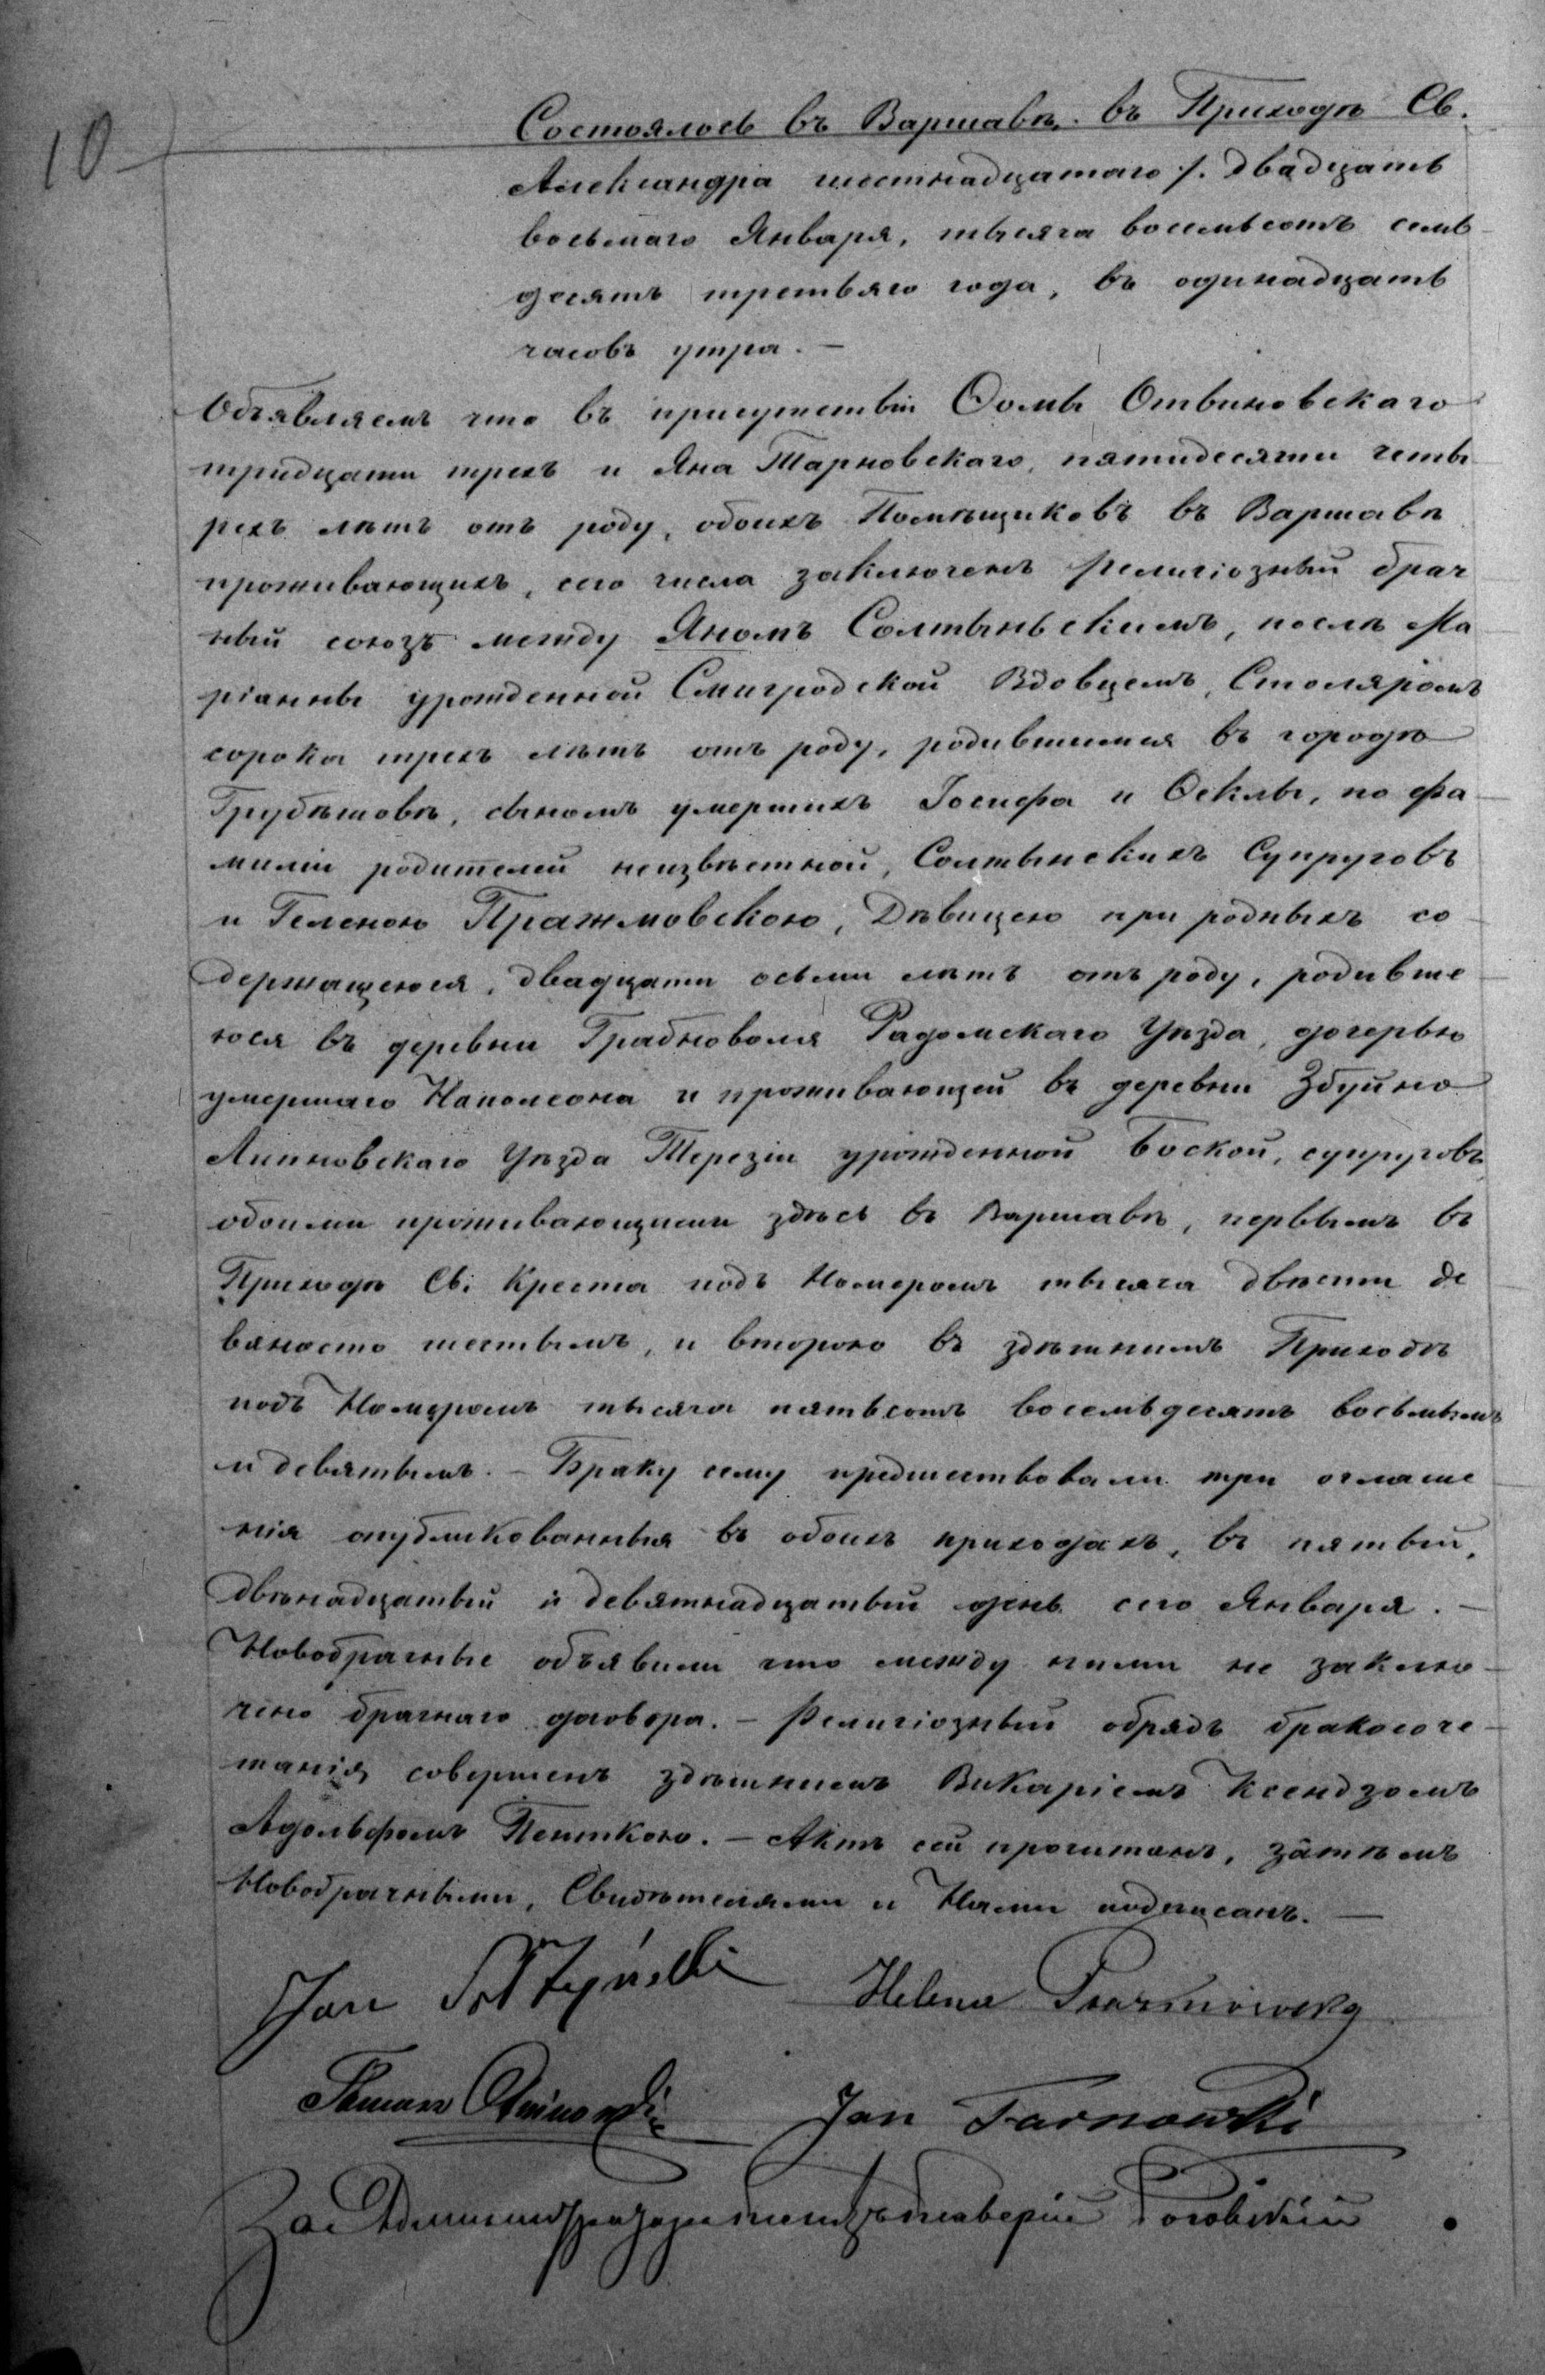 10
Состоялось въ Варшавѣ въ Приходѣ Св.
Александра шестнадцатаго /. двадцать
восьмаго Января, тысяча восемьсотъ семь
десятъ третьяго года, въ одинадцать
часовъ утра. —
Объявляемъ что въ присутствіи Ѳомы Отвиновскаго
тридцати трехъ и Яна Тарновскаго, пятидесяти четы
рехъ лѣтъ отъ роду, обоихъ Помѣщиковъ въ Варшавѣ
проживающихъ, сего числа заключенъ религіозный брач
ный союзъ между Яномъ Солтыньскимъ, послѣ Ма
ріанны урожденной Смигродской Вдовцемъ, Столяромъ
сорока трехъ лѣтъ отъ роду, родившимся въ городѣ
Грубѣшовѣ, сыномъ умершихъ Іосифа и Ѳеклы, по фа
миліи родителей неизвѣстной, Солтынскихъ Супруговъ
и Геленою Пражмовскою, Дѣвицею при родныхъ со
держащеюся, двадцати осьми лѣтъ отъ роду, родивше
юся въ деревни Грабноволя Радомскаго Уѣзда, дочерью
умершаго Наполеона и проживающей въ деревни Збуйно
Липновскаго Уѣзда Терезіи урожденной Боской, супруговъ
обоими проживающими здѣсь въ Варшавѣ, первымъ въ
Приходѣ Св. Креста подъ Номеромъ тысяча двѣсти де
вяносто шестымъ, и второю въ здѣшнимъ Приходѣ
подъ Номеромъ тысяча пятьсотъ восемьдесятъ восьмымъ
и девятымъ. — Браку сему предшествовали три оглаше
нія опубликованныя въ обоихъ приходахъ, въ пятый,
двѣнадцатый и девятнадцатый день сего Января. —
Новобрачные объявили что между ними не заклю-
чено брачнаго договора. — Религіозный обрядъ бракосоче-
танія совершенъ здѣшнимъ Викаріемъ Ксендзомъ
Адольфомъ Пенткою. — Актъ сей прочитанъ, затѣмъ
Новобрачными, Свидѣтелями и Нами подписанъ. —
Jan Sołtyński Helena Prażmowska
Tomasz Otwinowski Jan Tarnowski
За Администратора Ксендзъ Ксаверій Роговскій